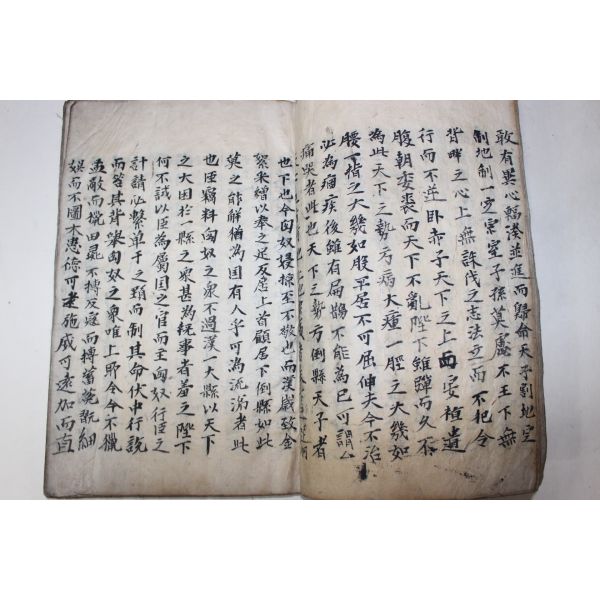 敢有異心輻湊並進而歸命天子割地定
制地制一定宗室子孫莫慮不王下無
背畔之心上無誅伐之志法立而不犯令
行而不逆臥赤子天下之上而安植遺
腹朝委裘而天下不亂陛下誰憚而久不
為此天下之勢方病大瘇一脛之大幾如
腰一指之大幾如股平居不可屈伸夫今不治
必為痼疾後雖有扁鵲不能為已可謂
痛哭者此也天下之勢方倒縣天子者
也下也今匈奴嫚掠至不敬也而漢歲致金
絮采繒以奉之足反居上首顧居下倒縣如此
莫之能解猶為國有人乎可為流涕者此
也臣竊料匈奴之衆不過漢一大縣以天下
之大困於一縣之衆甚為執事者羞之陛下
何不試以臣為屬國之官而主匈奴行臣之
計請必繫單于之頸而制其命伏中行說
而笞其背擧匈奴之衆唯上即令今不獵
猛敵而獵田彘不搏反寇而搏蓄菟翫細
娛而不圖大患德可遠施威可遠加而直